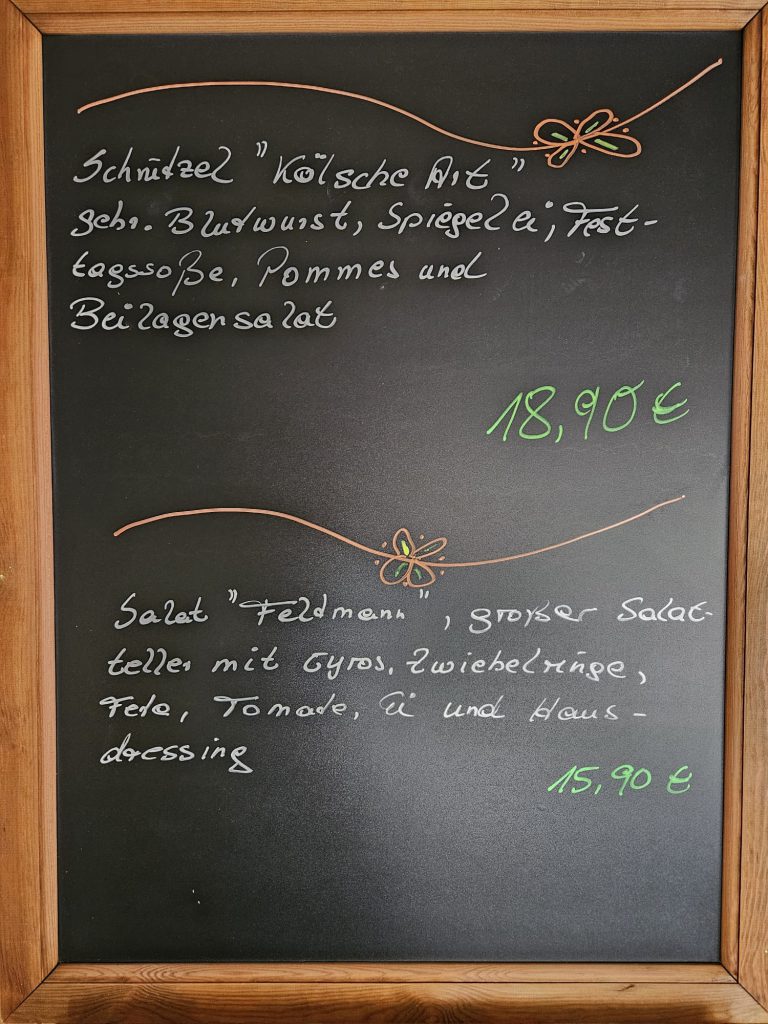 Schnitzel "Kölsche Art"
gebr. Blutwurst, Spiegelei, Fest-
tagssoße, Pommes und
Beilagensalat
18,90 €
Salat "Feldmann", großer Salat-
teller mit Gyros, Zwiebelringe,
Feta, Tomate, Ei und Haus-
dressing
15,90 €